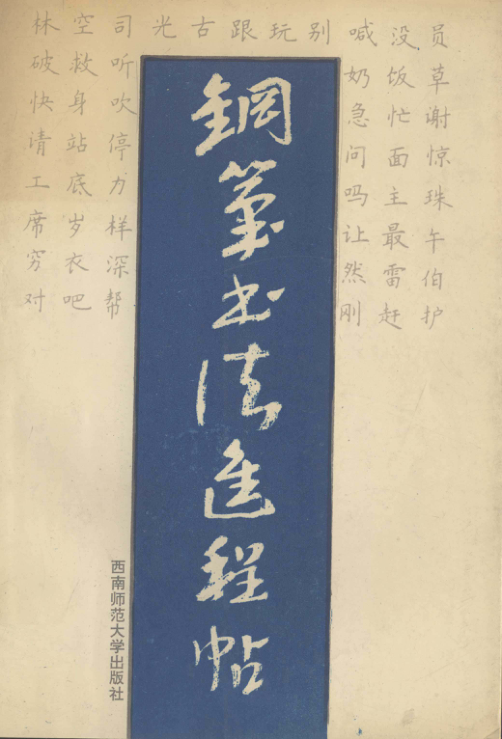 员草谢惊珠午伯护
没饭忙面主最雷赶
喊奶急问吗让然刚
别
玩
跟
古
光
司听吹停力样深帮
空救身站底岁衣吧
林破快请工席穷对
鋼筆书法進程帖
西南师范大学出版社